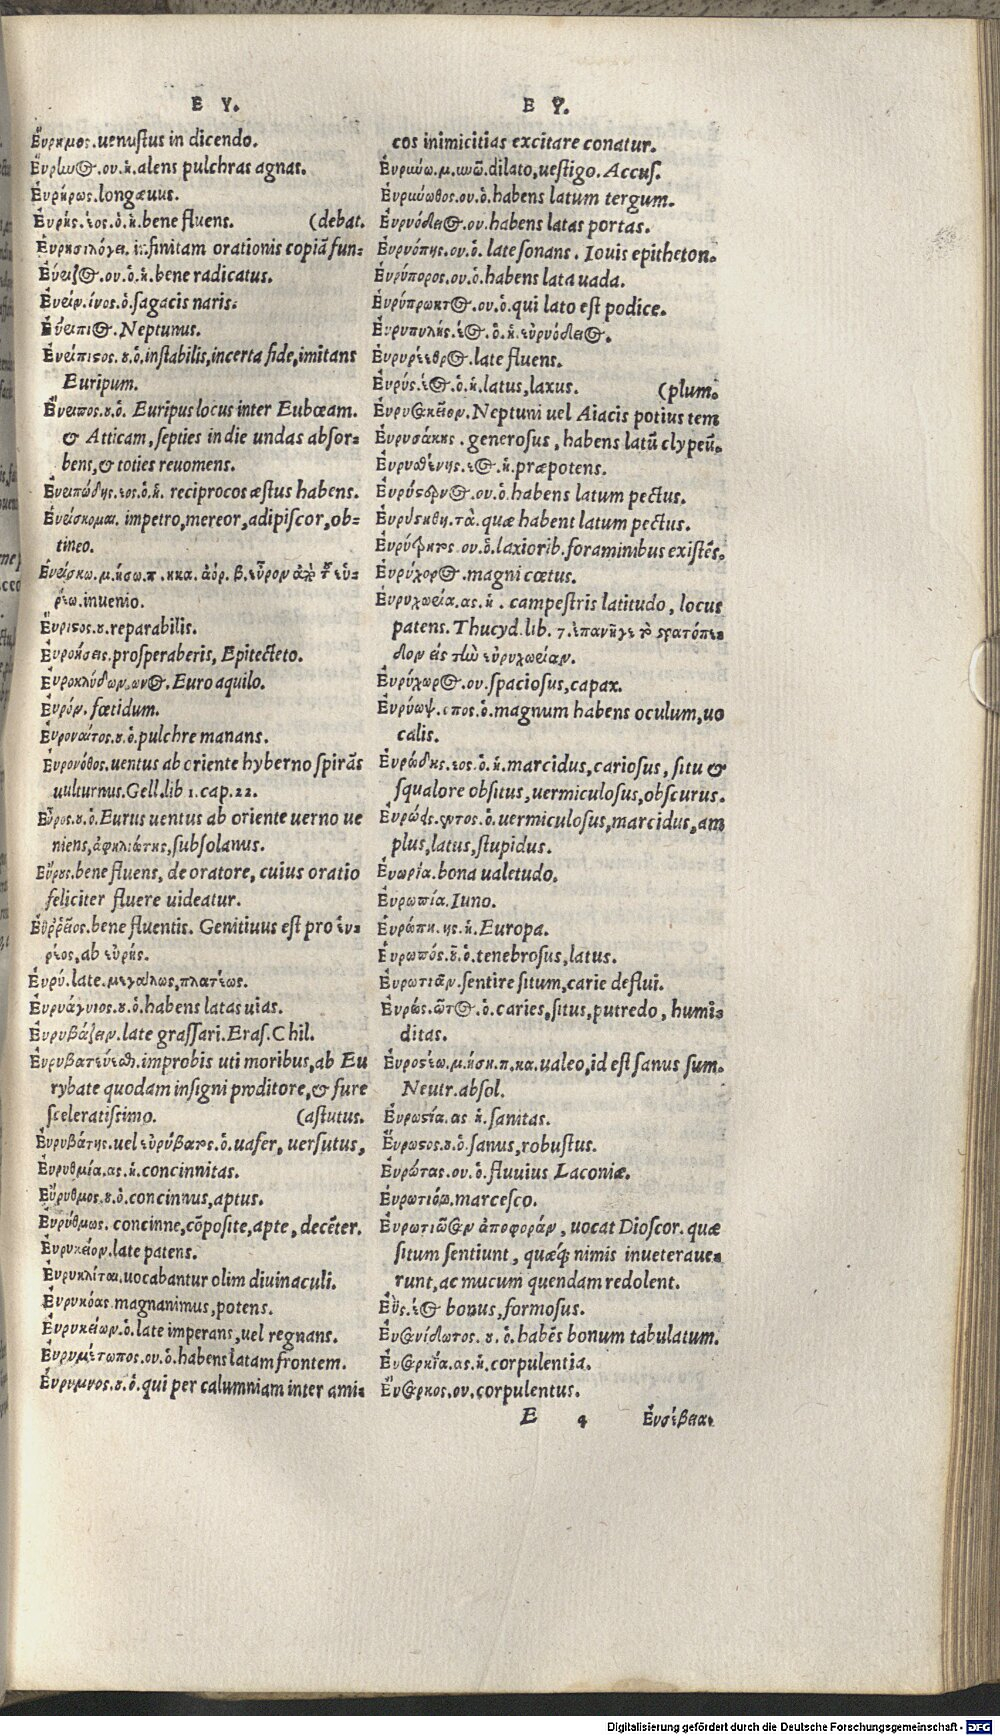 Ε Υ.
Εὔρημος. uenustus in dicendo.
Εὔρην. ου. ἡ. alens pulchras agnas.
Εὐρήρως. longæuus.
Εὐρής. έος. ὁ. ἡ. bene fluens. (debat.
Εὐρησιλόγει. infinitam orationis copiã fun-
Εὔριζος. ου. ὁ. ἡ. bene radicatus.
Εὐρίν. ινος. ὁ. sagacis naris.
Neptunus.
Εὐρίπιστος. ȣ. ὁ. instabilis, incerta fide, imitans
Euripum.
Εὔριπος. ȣ. ὁ. Euripus locus inter Eubœam.
& Atticam, septies in die undas absor-
bens, & toties reuomens.
Εὐριπώδης. εος. ὁ. ἡ. reciprocos æstus habens.
Εὑρίσκομαι. impetro, mereor, adipiscor, ob-
tineo.
Εὑρίσκω. μ. ήσω. π. ηκα. ἀόρ. β. εὗρον ἀπὸ τοῦ εὑ-
ρέω. inuenio.
Εὔριστος. ȣ. reparabilis.
Εὐροήσεις. prosperaberis, Epitecteto.
Εὐροκλύδων. ωνος. Euroaquilo.
Εὐρόν. fœtidum.
ȣ. ὁ. pulchre manans.
Εὐρονόθος. uentus ab oriente hyberno spirãs
uulturnus. Gell. lib 1. cap. 22.
Εὖρος. ȣ. ὁ. Eurus uentus ab oriente uerno ue
niens, ἀφηλιώτης, subsolanus.
Εὔρους. bene fluens, de oratore, cuius oratio
feliciter fluere uideatur.
Εὐῤῥεῖος. bene fluentis. Genitiuus est pro εὐυ-
ρέος, ab εὐρής.
Εὐρύ. late. μεγάλως, πλατέως.
Εὐρυάγυιος. ȣ. ὁ. habens latas uias.
Εὐρυβάζειν. late grassari. Eras. Chil.
Εὐρυβατεύεσθαι. improbis uti moribus, ab Eu
rybate quodam insigni proditore, & fure
sceleratissimo. (astutus.
Εὐρυβάτης. uel εὐρύβατος. ὁ. uafer, uersutus,
Εὐρυθμία. ας. ἡ. concinnitas.
Εὔρυθμος. ȣ. ὁ. concinnus, aptus.
Εὐρύθμως. concinne, cõposite, apte, decẽter.
Εὐρυκεῖον. late patens.
Εὐρυκλῖται. uocabantur olim diuinaculi.
Εὐρυκόας. magnanimus, potens.
Εὐρυκείων. ὁ. late imperans, uel regnans.
Εὐρυμέτωπος. ου. ὁ. habens latam frontem.
Εὐρυμνος. ȣ. ὁ. qui per calumniam inter ami-
Ε Υ.
cos inimicitias excitare conatur.
Εὐρύνω. μ. υνῶ. dilato, uestigo. Accus.
Εὐρύνωθος. ου. ὁ. habens latum tergum.
Εὐρυόδειος. ου. habens latas portas.
Εὐρυόπης. ου. ὁ. late sonans. Iouis epitheton.
Εὐρύπορος. ου. ὁ. habens lata uada.
Εὐρύπρωκτος. ου. ὁ. qui lato est podice.
Εὐρυπυλής. έος. ὁ. ἡ. εὐρυόδειος.
Εὐρυρέεθρος. late fluens.
Εὐρύς. έος. ὁ. ἡ. latus, laxus. (plum.
Εὐρυσάκειον. Neptuni uel Aiacis potius tem
Εὐρυσάκης. generosus, habens latũ clypeũ.
Εὐρυσθένης. εος. ἡ. præpotens.
Εὐρύστερνος. ου. ὁ. habens latum pectus.
Εὐρύστηθη. τὰ. quæ habent latum pectus.
ου. ὁ. laxiorib. foraminibus existẽs.
Εὐρύχορος. magni cœtus.
Εὐρυχωρία. ας. ἡ. campestris latitudo, locus
patens. Thucyd. lib. 7. ἐπανῆγε τὸ στρατόπε-
δον εἰς τὴν εὐρυχωρίαν.
Εὐρύχωρος. ου. spaciosus, capax.
Εὐρύωψ. οπος. ὁ. magnum habens oculum, uo
calis.
Εὐρώδης. εος. ὁ. ἡ. marcidus, cariosus, situ &
squalore obsitus, uermiculosus, obscurus.
ὁ. uermiculosus, marcidus, am
plus, latus, stupidus.
Εὐωρία. bona ualetudo.
Εὐρωπία. Iuno.
Εὐρώπη. ης. ἡ. Europa.
Εὐρωπός. ȣ. ὁ. tenebrosus, latus.
Εὐρωτιᾶν. sentire situm, carie deflui.
Εὐρώς. ῶτος. ὁ. caries, situs, putredo, humi-
ditas.
Εὐρωστέω. μ. ήσω. π. κα. ualeo, id est sanus sum.
Neutr. absol.
Εὐρωστία. ας ἡ. sanitas.
Εὔρωστος. ȣ. ὁ. sanus, robustus.
Εὐρώτας. ου. ὁ. fluuius Laconiæ.
Εὐρωτιόω. marcesco.
Εὐρωτιῶσαν ἀποφοράν, uocat Dioscor. quæ
situm sentiunt, quæq; nimis inueteraue-
runt, ac mucum quendam redolent.
Εὖς. έος bonus, formosus.
Εὐσανίδωτος. ȣ. ὁ. habẽs bonum tabulatum.
Εὐσαρκία. ας. ἡ. corpulentia.
Εὔσαρκος. ου. corpulentus.
E 4 Εὐσέβεια.
Digitalisierung gefördert durch die Deutsche Forschungsgemeinschaft - DFG